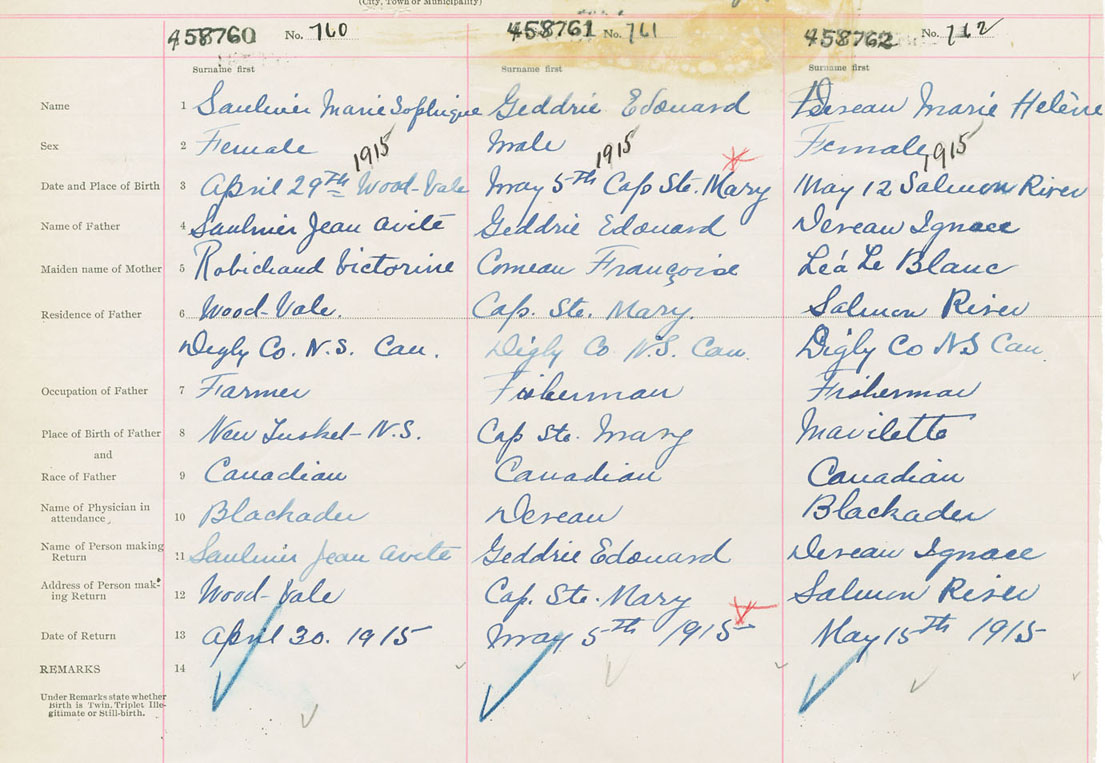 (City, Town or Municipality)
458760 No. 760 458761 No. 761 458762 No. 762
Surname first Surname first Surname first
Name 1 Saulnier Marie Sophique Geddrie Edouard Deveau Marie Helène
Sex 2 Female Male Female
1915 1915 1915
Date and Place of Birth 3 April 29th Wood-Vale May 5th Cap Ste. Mary May 12 Salmon River
Name of Father 4 Saulnier Jean Avite Geddrie Edouard Deveau Ignace
Maiden name of Mother 5 Robichaud Victorine Comeau Françoise Léa Le Blanc
Residence of Father 6 Wood-Vale. Cap. Ste. Mary. Salmon River
Digby Co. N.S. Can. Digby Co N.S. Can. Digby Co N S Can.
Occupation of Father 7 Farmer Fisherman Fisherman
Place of Birth of Father 8 New Tusket-N.S. Cap Ste. Mary Mavilette
and
Race of Father 9 Canadian Canadian Canadian
Name of Physician in
attendance, 10 Blackader Deveau Blackader
Name of Person making
Return 11 Saulnier Jean Avite Geddrie Edouard Deveau Ignace
Address of Person mak-
ing Return 12 Wood-Vale Cap. Ste. Mary Salmon River
Date of Return 13 April 30. 1915 May 5th 1915 May 15th 1915
REMARKS 14
Under Remarks state whether
Birth is Twin, Triplet Ille-
gitimate or Still-birth.